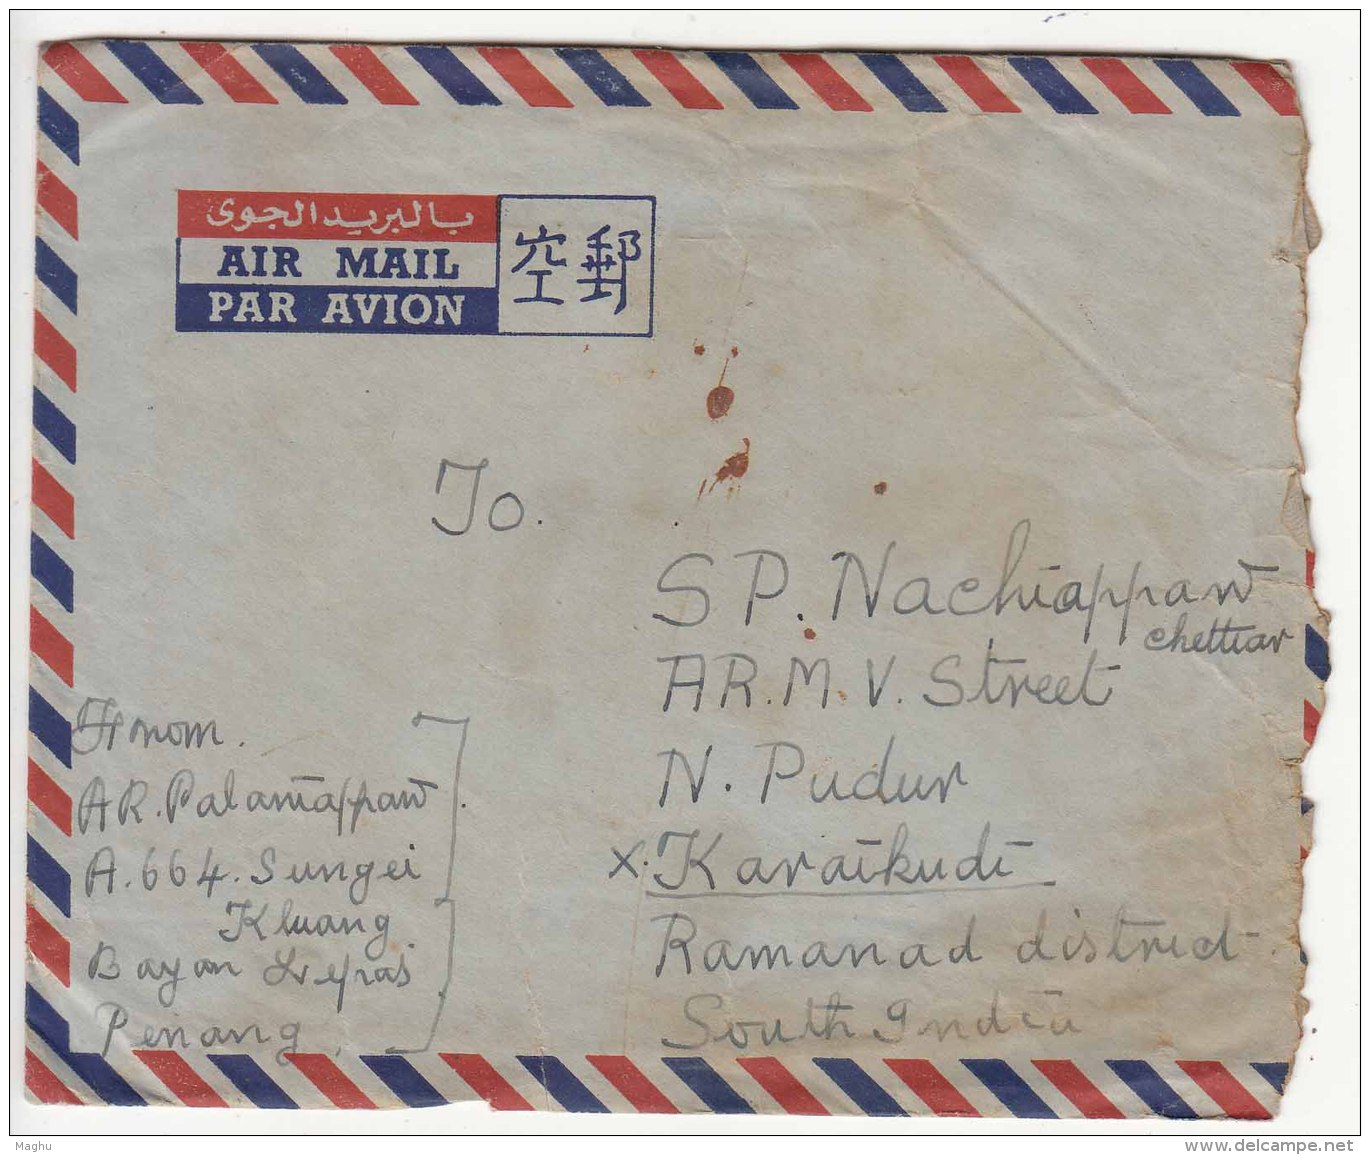 بالبريد الجوى
AIR MAIL
PAR AVION
空郵
To.
S P. Nachiappan
chettiar
AR.M.V. Street
N. Pudur
X. Karaikudi
Ramanad district
South India
From.
AR. Palaniappan
A. 664. Sungei
Kluang
Bayan Lepas
Penang.
Maghu
www.delcampe.net